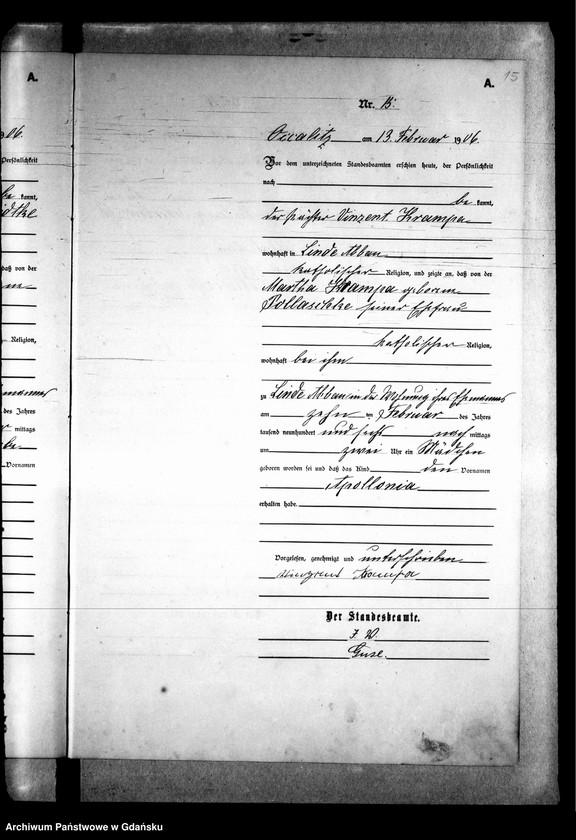 A.
A. 15
Nr. 15.
am 13. Februar 1906.
Vor dem unterzeichneten Standesbeamten erschien heute, der Persönlichkeit
nach
be kannt,
der Pächter Vinzent Krampa
wohnhaft in Linde Abbau
katholischer Religion, und zeigte an, daß von der
Martha Krampa geborenen
Pollaschke seiner Ehefrau
katholischer Religion,
wohnhaft bei ihm
zu Linde Abbau in der Wohnung ihres Ehemannes
am zehn ten Februar des Jahres
tausend neunhundert und sechs nach mittags
um zwei Uhr ein Mädchen
geboren worden sei und daß das Kind den Vornamen
Apollonia
erhalten habe.
Vorgelesen, genehmigt und unterschrieben
Krampa
Der Standesbeamte.
J. V.
Guse.
906.
Persönlichkeit
be kannt,
daß von der
Religion,
des Jahres
mittags
Vornamen
Archiwum Państwowe w Gdańsku